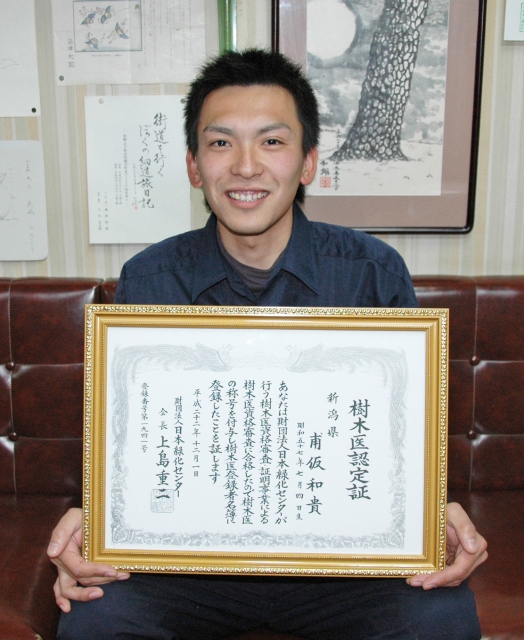 街道を行く
ぼくの細道旅日記
樹木医認定証
新潟県
甫仮和貴
昭和五十七年七月四日生
あなたは財団法人日本緑化センターが
行う樹木医資格審査・証明事業による
樹木医資格審査に合格したので樹木医
の称号を付与し樹木医登録者名簿に
登録したことを証します
平成二十二年十二月一日
財団法人日本緑化センター
会長 上島重二
登録番号第一九四一号